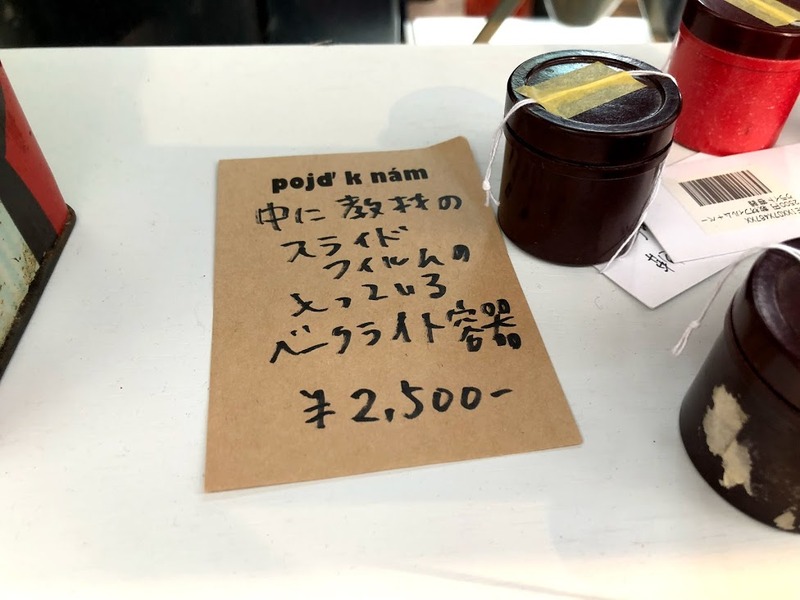 pojď k nám
中に教材の
スライド
フィルムの
入っている
ベークライト容器
¥2,500-